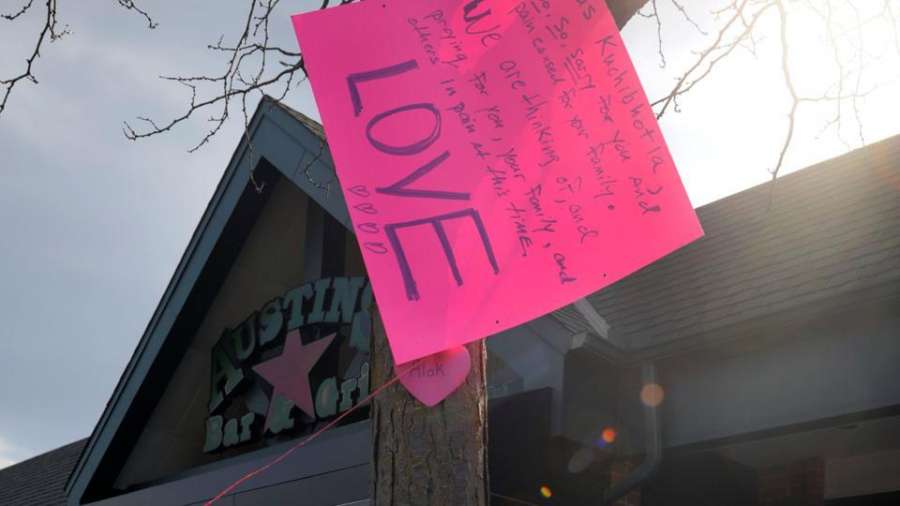 Kuchibhotla,
So, sorry for you and
pain caused for your family.
We are thinking of, and
praying for you, your family, and
others in pain at this time.
LOVE
Alok
AUSTIN
Bar & Gri